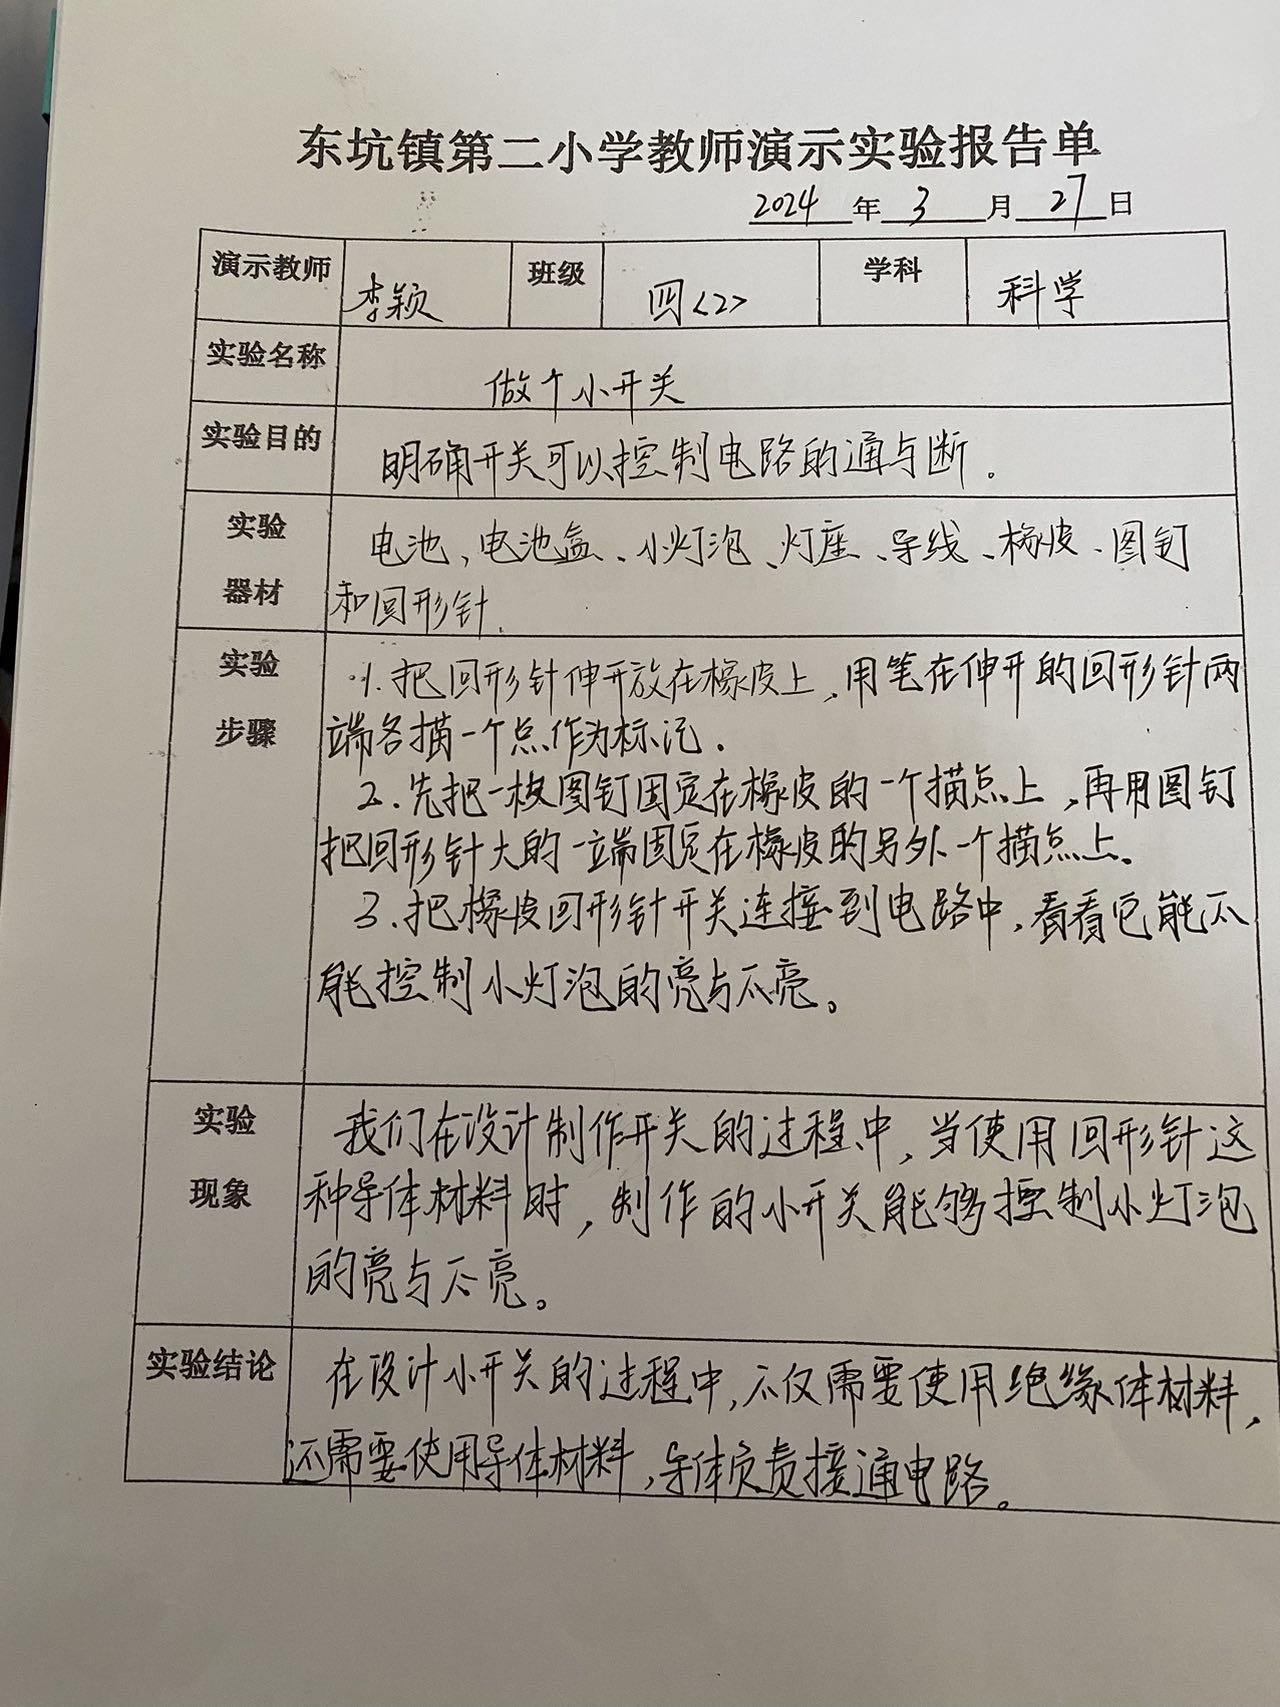 东坑镇第二小学教师演示实验报告单
2024 年 3 月 27 日
演示教师 李颖 班级 四<2> 学科 科学
实验名称 做个小开关
实验目的 明确开关可以控制电路的通与断.
实验 电池、电池盒、小灯泡、灯座、导线、橡皮、图钉
器材 和回形针.
实验 1.把回形针伸开放在橡皮上,用笔在伸开的回形针两
步骤 端各描一个点作为标记.
2.先把一枚图钉固定在橡皮的一个描点上,再用图钉
把回形针大的一端固定在橡皮的另外一个描点上。
3.把橡皮回形针开关连接到电路中,看看它能不
能控制小灯泡的亮与不亮。
实验 我们在设计制作开关的过程中,当使用回形针这
现象 种导体材料时,制作的小开关能够控制小灯泡
的亮与不亮。
实验结论 在设计小开关的过程中,不仅需要使用绝缘体材料,
还需要使用导体材料,导体负责接通电路。